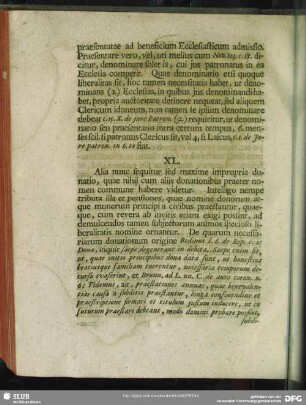 praesentatae ad beneficium Ecclesiasticum admissio.
Praesentare vero, vel, uti melius cum Nov. 123. c. 18. di-
citur, denominare solet is, cui jus patronatus in ea
Ecclesia competit. Quae denominatio etsi quoque
liberalitas sit, hoc tamen necessitatis habet, ut deno-
minans (1.) Ecclesias, in quibus jus denominandi ha-
bet, propria auctoritate detinere nequeat, sed aliquem
Clericum idoneum, non tamen se ipsum denominare
debeat c. 15. X. de jure Patron. (2.) requiritur, ut denomi-
natio seu praesentatio intra certum tempus, 6. men-
ses scil. si patronus Clericus sit, vel 4, si Laicus, c. 1. de Ju-
re patron. in 6.to fiat.
XL.
Alia nunc sequitur, sed maxime impropria do-
natio, quae nihil cum aliis donationibus praeter no-
men commune habere videtur. Intelligo nempe
tributa illa et pensiones, quae nomine donorum ac-
que munerum principi a civibus praestantur, quae-
que, cum revera ab invitis etiam exigi possint, ad
demulcendos tamen subjectorum animos specioso li-
beralitatis nomine ornantur. De quarum necessa-
riarum donationum origine Bodinus l. 6. de Rep. c. 2:
Dona, inquit saepe degenerant in debita. Saepe enim fit,
ut, quae initio principibus dona data sunt, ut honestius
beatiusque familiam tuerentur, necessaria temporum de-
cursu evaserint, et Brunn. ad L. un. C. de auro coron. n.
6: Videmus, ait, praestationes annuas, quae benevolen-
tiae causa a subditis praestantur, longa consuetudine et
praescriptione firmari et titulum justum inducere, ut in
futurum praestari debeant, modo domini probare possint,
subdi-
SLUB
http://digital.slub-dresden.de/
gefördert von der
Deutschen Forschungsgemeinschaft
DFG